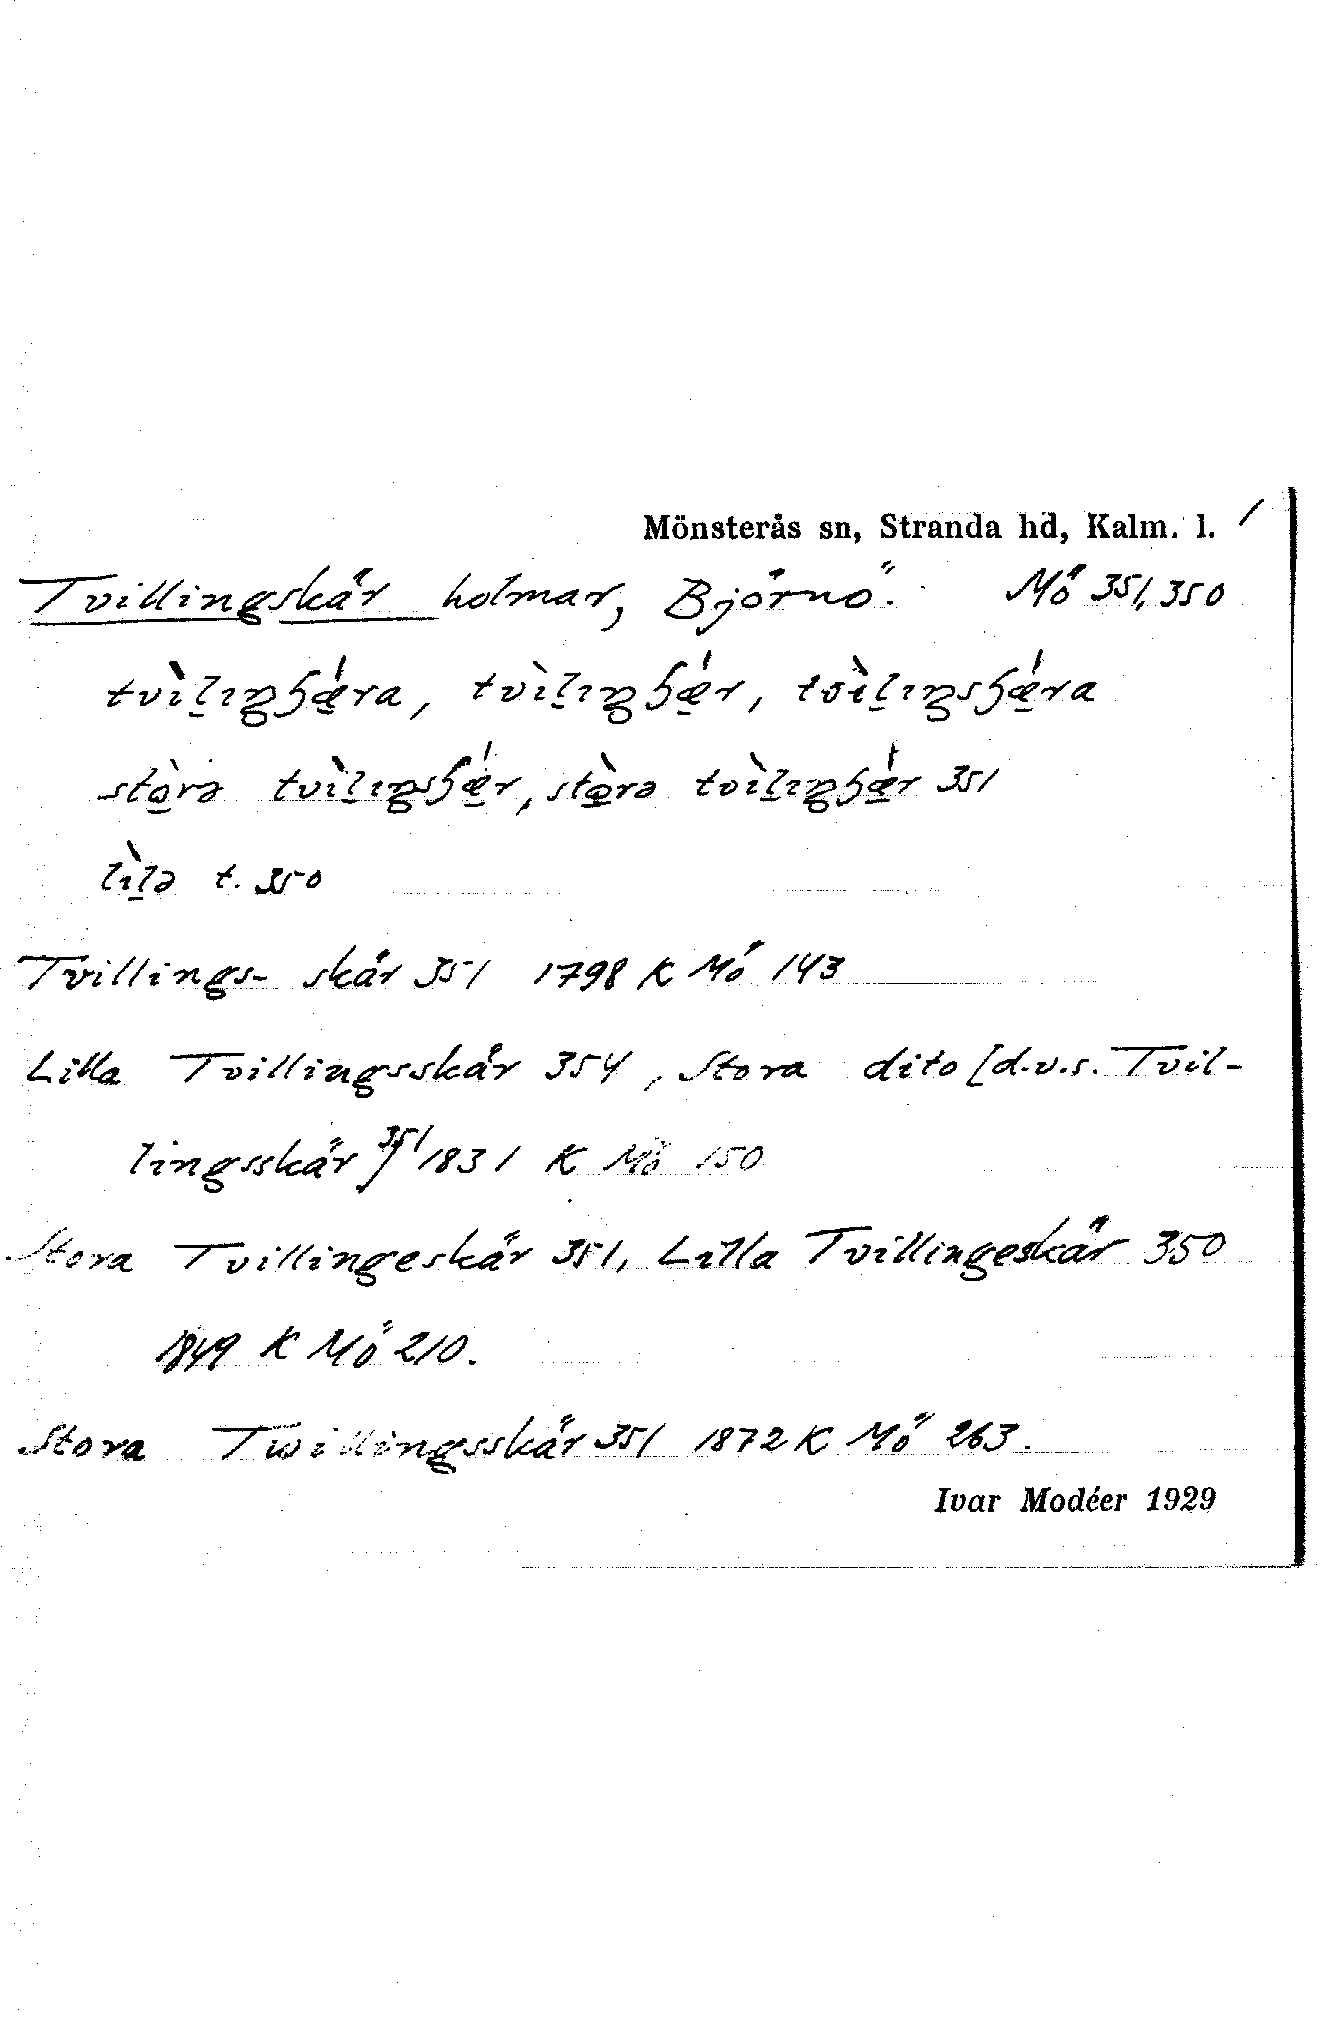 Mönsterås sn, Stranda hd, Kalm. l. /
Tvillingskär holmar, Björnö. Mö 351, 350
tvìlıŋɧǽra, tvìlıŋɧǽr, tvìlıŋsɧǽra
stòrə tvìlıŋsɧǽr, stòrə tvìlıŋɧǽr 351
lìlə t. 350
Tvillings- skär 351 1798 K Mö 143
Lilla Tvillingsskär 354, Stora dito [d.v.s. Tvil-
lingsskär] 351 1831 K Mö 150
Stora Tvillingeskär 351, Lilla Tvillingeskär 350
1849 K Mö 210.
Stora Twillingsskär 351 1872 K Mö 263.
Ivar Modéer 1929